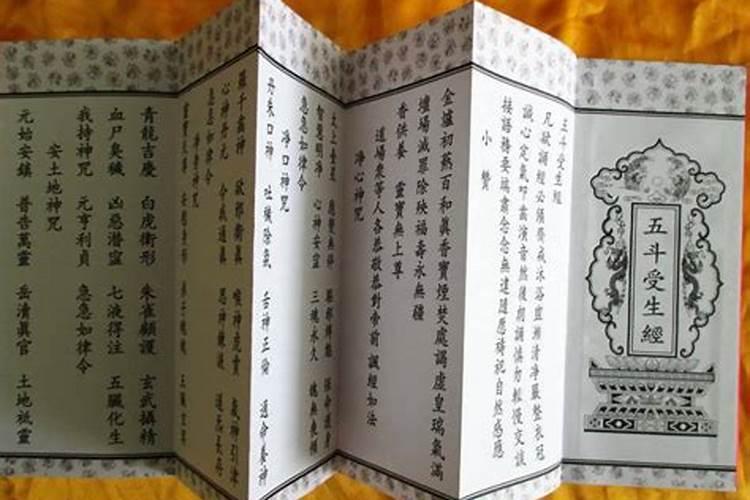 五斗受生經
五斗受生經
凡欲誦經必須齋戒沐浴盥漱清淨嚴整衣冠
誠心定氣叩齒演音然後朗誦慎勿輕慢交談
接語務要端肅念念無違隨愿禱祀自然感應
小贊
金爐初爇百和眞香寶煙焚處謁虛皇瑞氣滿
壇場滅罪除殃福壽永無疆
香供養 靈寶無上尊
道場衆等人各恭敬恭對帝前 誦經如法
淨心神咒
太上台星 應變無停 驅邪縛魅 保命護身
智慧明淨 心神安寍 三魂永久 魄無喪傾
急急如律令
淨口神咒
丹朱口神 吐穢除氛 舌神正倫 通命養神
羅千齒神 敵邪衛眞 喉神虎賁 炁神引津
心神丹元 令我通眞 思神鍊液 道炁長存
急急如律令
淨身神咒
靈寶天尊 安慰身形 弟子魂魄 五臟玄冥
青龍吉慶 白虎衛形 朱雀顧護 玄武攝精
血尸臭穢 凶惡潛寍 七液得注 五臟化生
我持神咒 元亨利貞 急急如律令
安土地神咒
元始安鎮 普告萬靈 岳清眞官 土地祗靈